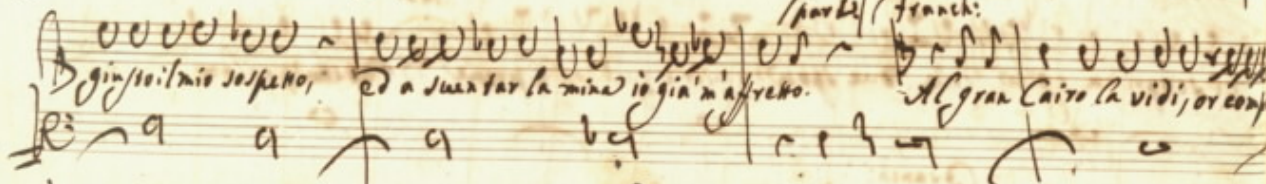 (parte) franch:
giusto il mio sospetto, ed a sventar la mina io già m'affretto. Al gran Cairo la vidi, or